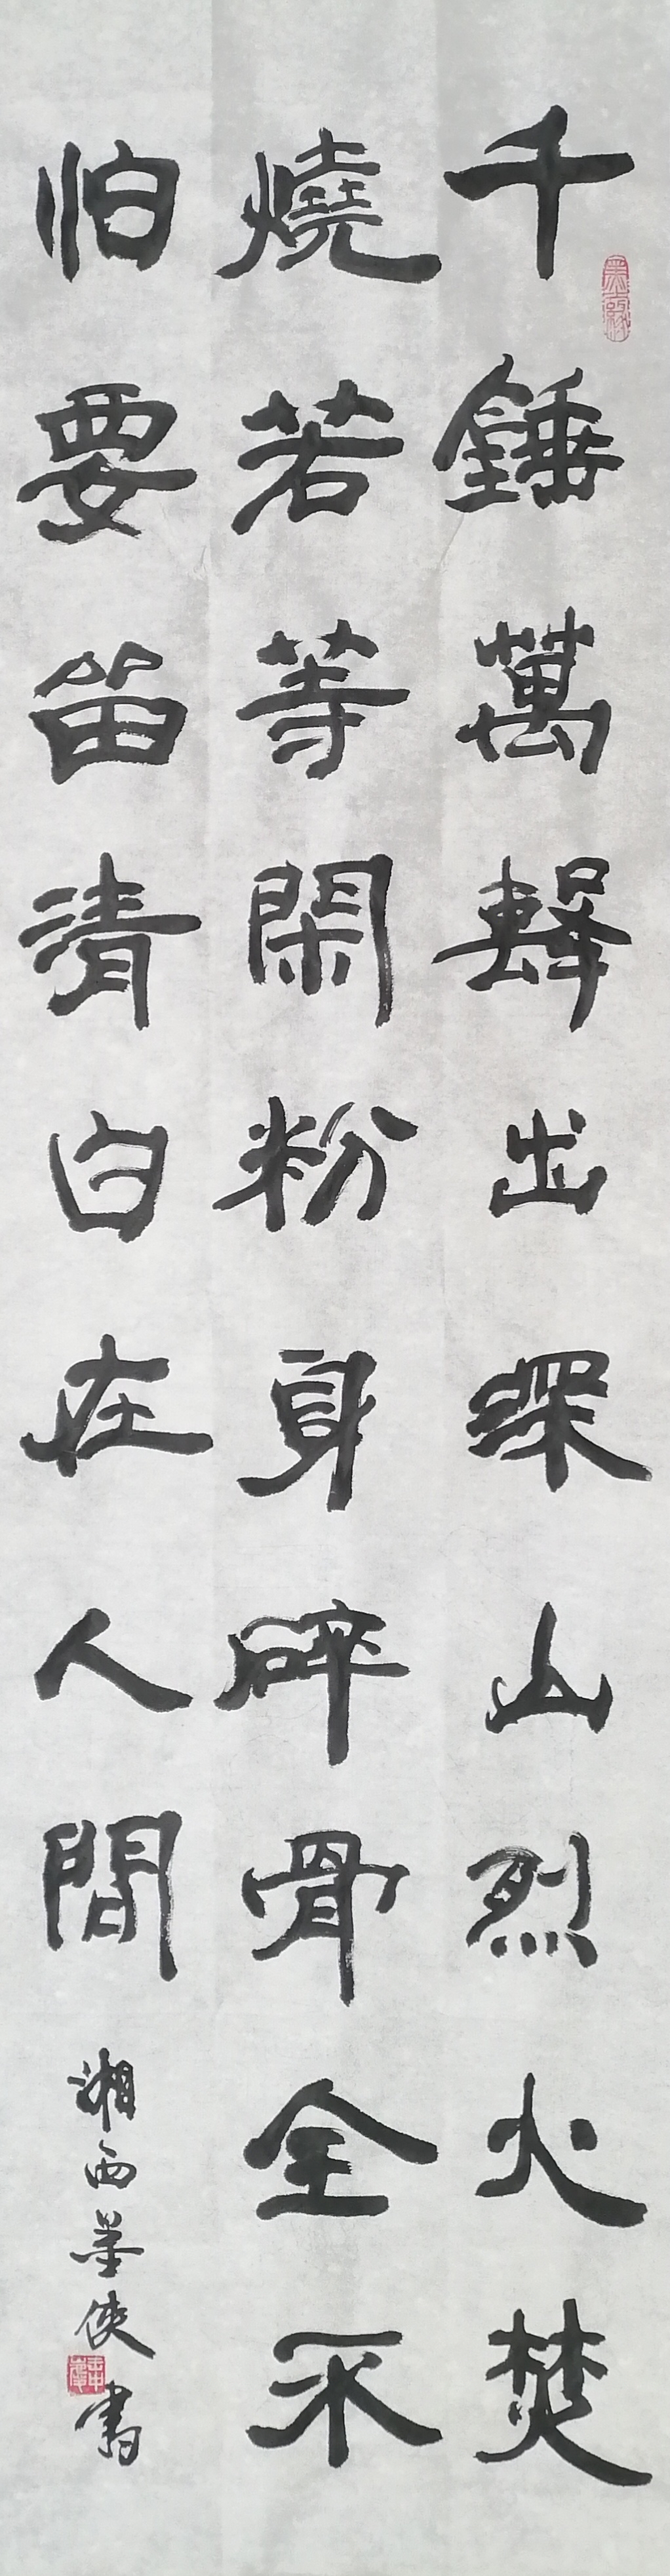 千錘萬擊出深山烈火焚
燒若等閑粉身碎骨全不
怕要留清白在人間
湘西墨俠書